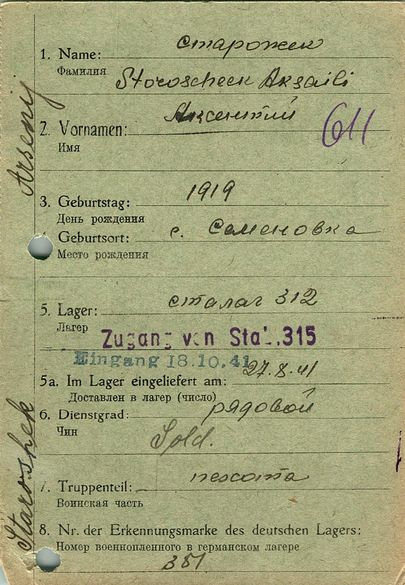 1. Name: Старожек
Фамилия Storoscheck Aksaili
Аксентий
2. Vornamen: 611
Имя
3. Geburtstag: 1919
День рождения
Geburtsort: с. Семеновка
Место рождения
5. Lager: сталаг 312
Лагерь
Zugang von Stal. 315
Eingang 18.10.41
5a. Im Lager eingeliefert am: 27.8.41
Доставлен в лагерь (число)
6. Dienstgrad: рядовой
Чин Sold.
7. Truppenteil: пехота
Воинская часть
8. Nr. der Erkennungsmarke des deutschen Lagers:
Номер военнопленного в германском лагере
351
Staroshek Arsenij